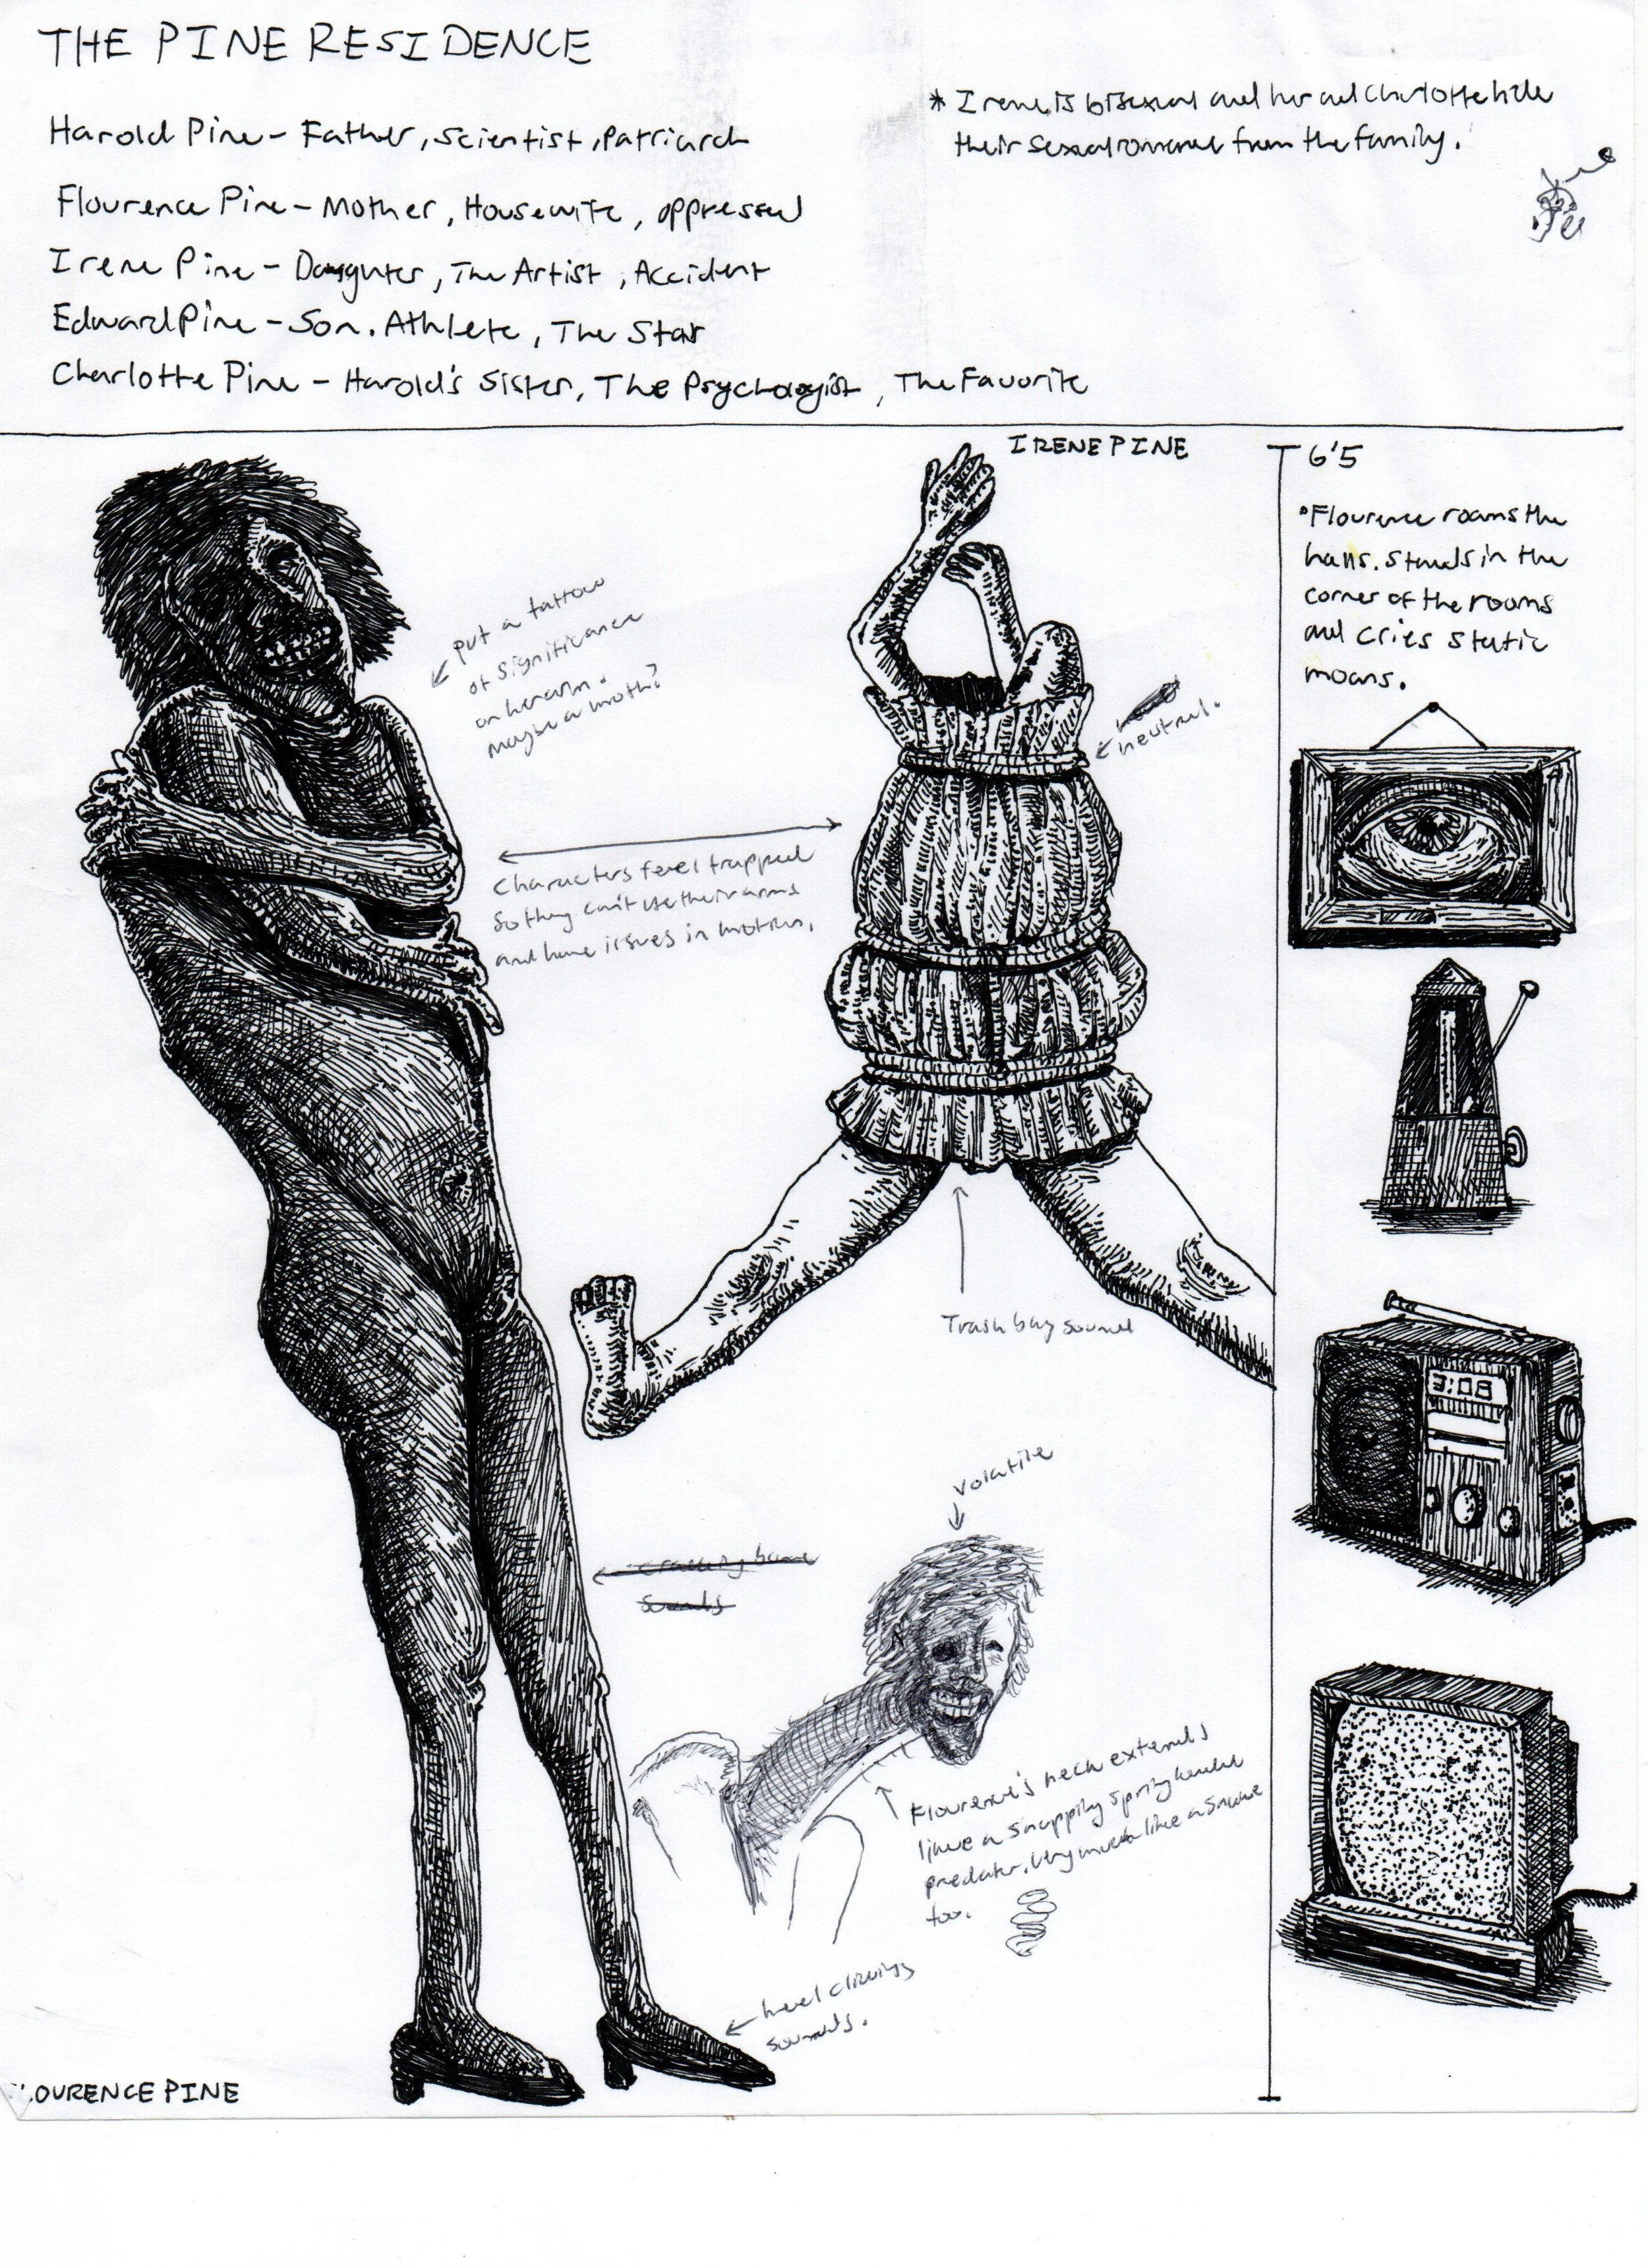 THE PINE RESIDENCE
Harold Pine - Father, Scientist, Patriarch
Flourence Pine - Mother, Housewife, oppressed
Irene Pine - Daughter, The Artist, Accident
Edward Pine - Son. Athlete, The Star
Charlotte Pine - Harold's Sister, The Psychologist, The Favorite
* Irene is bisexual and her and Charlotte hide
their sexual romance from the family.
IRENE PINE
6'5
•Flourence roams the
halls. Stands in the
corner of the rooms
and cries static
moans.
put a tattoo
of significance
on her arm.
maybe a moth?
neutral.
Characters feel trapped
so they can't use their arms
and have issues in motion.
Trash bag sound
volatile
cracking bone
sounds
Flourence's neck extends
like a snapping spring loaded
predator. Very much like a snake
too.
heel clicking
sounds.
LOURENCE PINE